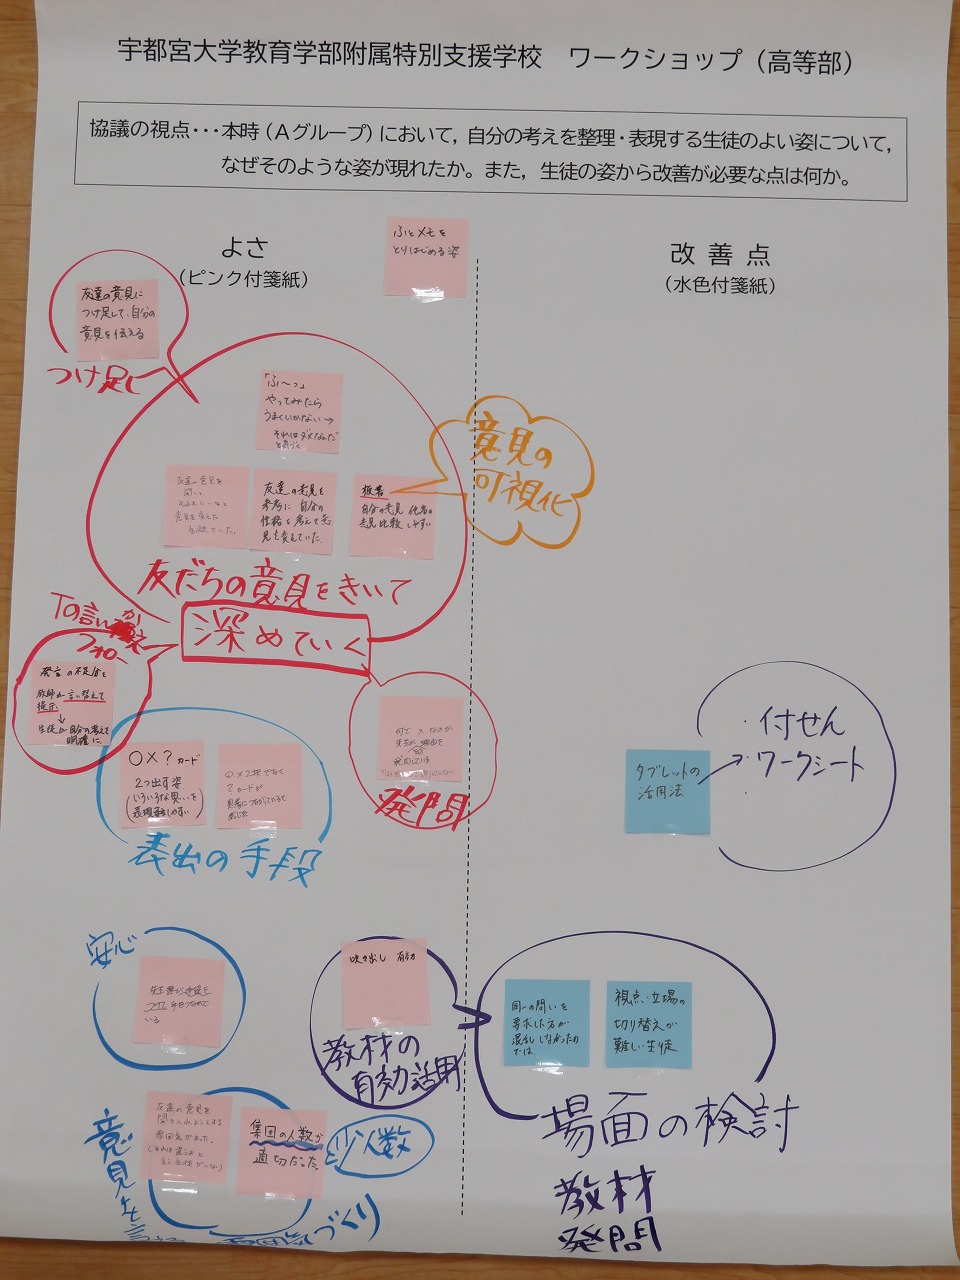 宇都宮大学教育学部附属特別支援学校　ワークショップ（高等部）
協議の視点･･･本時（Ａグループ）において，自分の考えを整理・表現する生徒のよい姿について，
なぜそのような姿が現れたか。また，生徒の姿から改善が必要な点は何か。
よさ
（ピンク付箋紙）
改 善 点
（水色付箋紙）
ふとメモを
とりはじめる姿
友達の意見に
つけ足して、自分の
意見を伝える
つけ足し
「ふ〜っ」
やってみたら
うまくいかない→
それはダメなんだ
と気づく
友達の意見を
聞いて
それもいいなと
意見を変えた
生徒がいた。
友達の意見を
参考に自分の
性格も考えて意
見を変えていた。
板書
自分の意見 他者の
意見比較しやすい
意見の
可視化
友だちの意見をきいて
深めていく
Tの言いかえ
フォロー
発言の不足分を
教師が言い替えて
提示
↓
生徒が自分の考えて
明確に
○×？カード
2つ出す姿
いろいろな思いを
表現しやすい
○×2択でなく
？カードが
表出の手段
何で×なのか
発問
タブレットの
活用法
・付せん
・ワークシート
・
安心
吹き出し 有効
教材の
有効活用
同一の問いを
要求した方が
混乱しなかったの
では。
視点、立場の
切り替えが
難しい生徒
場面の検討
教材
発問
友達の意見を
聞き入れようとする
雰囲気があった。
集団の人数が
適切だった。
少人数
意見を
づくり